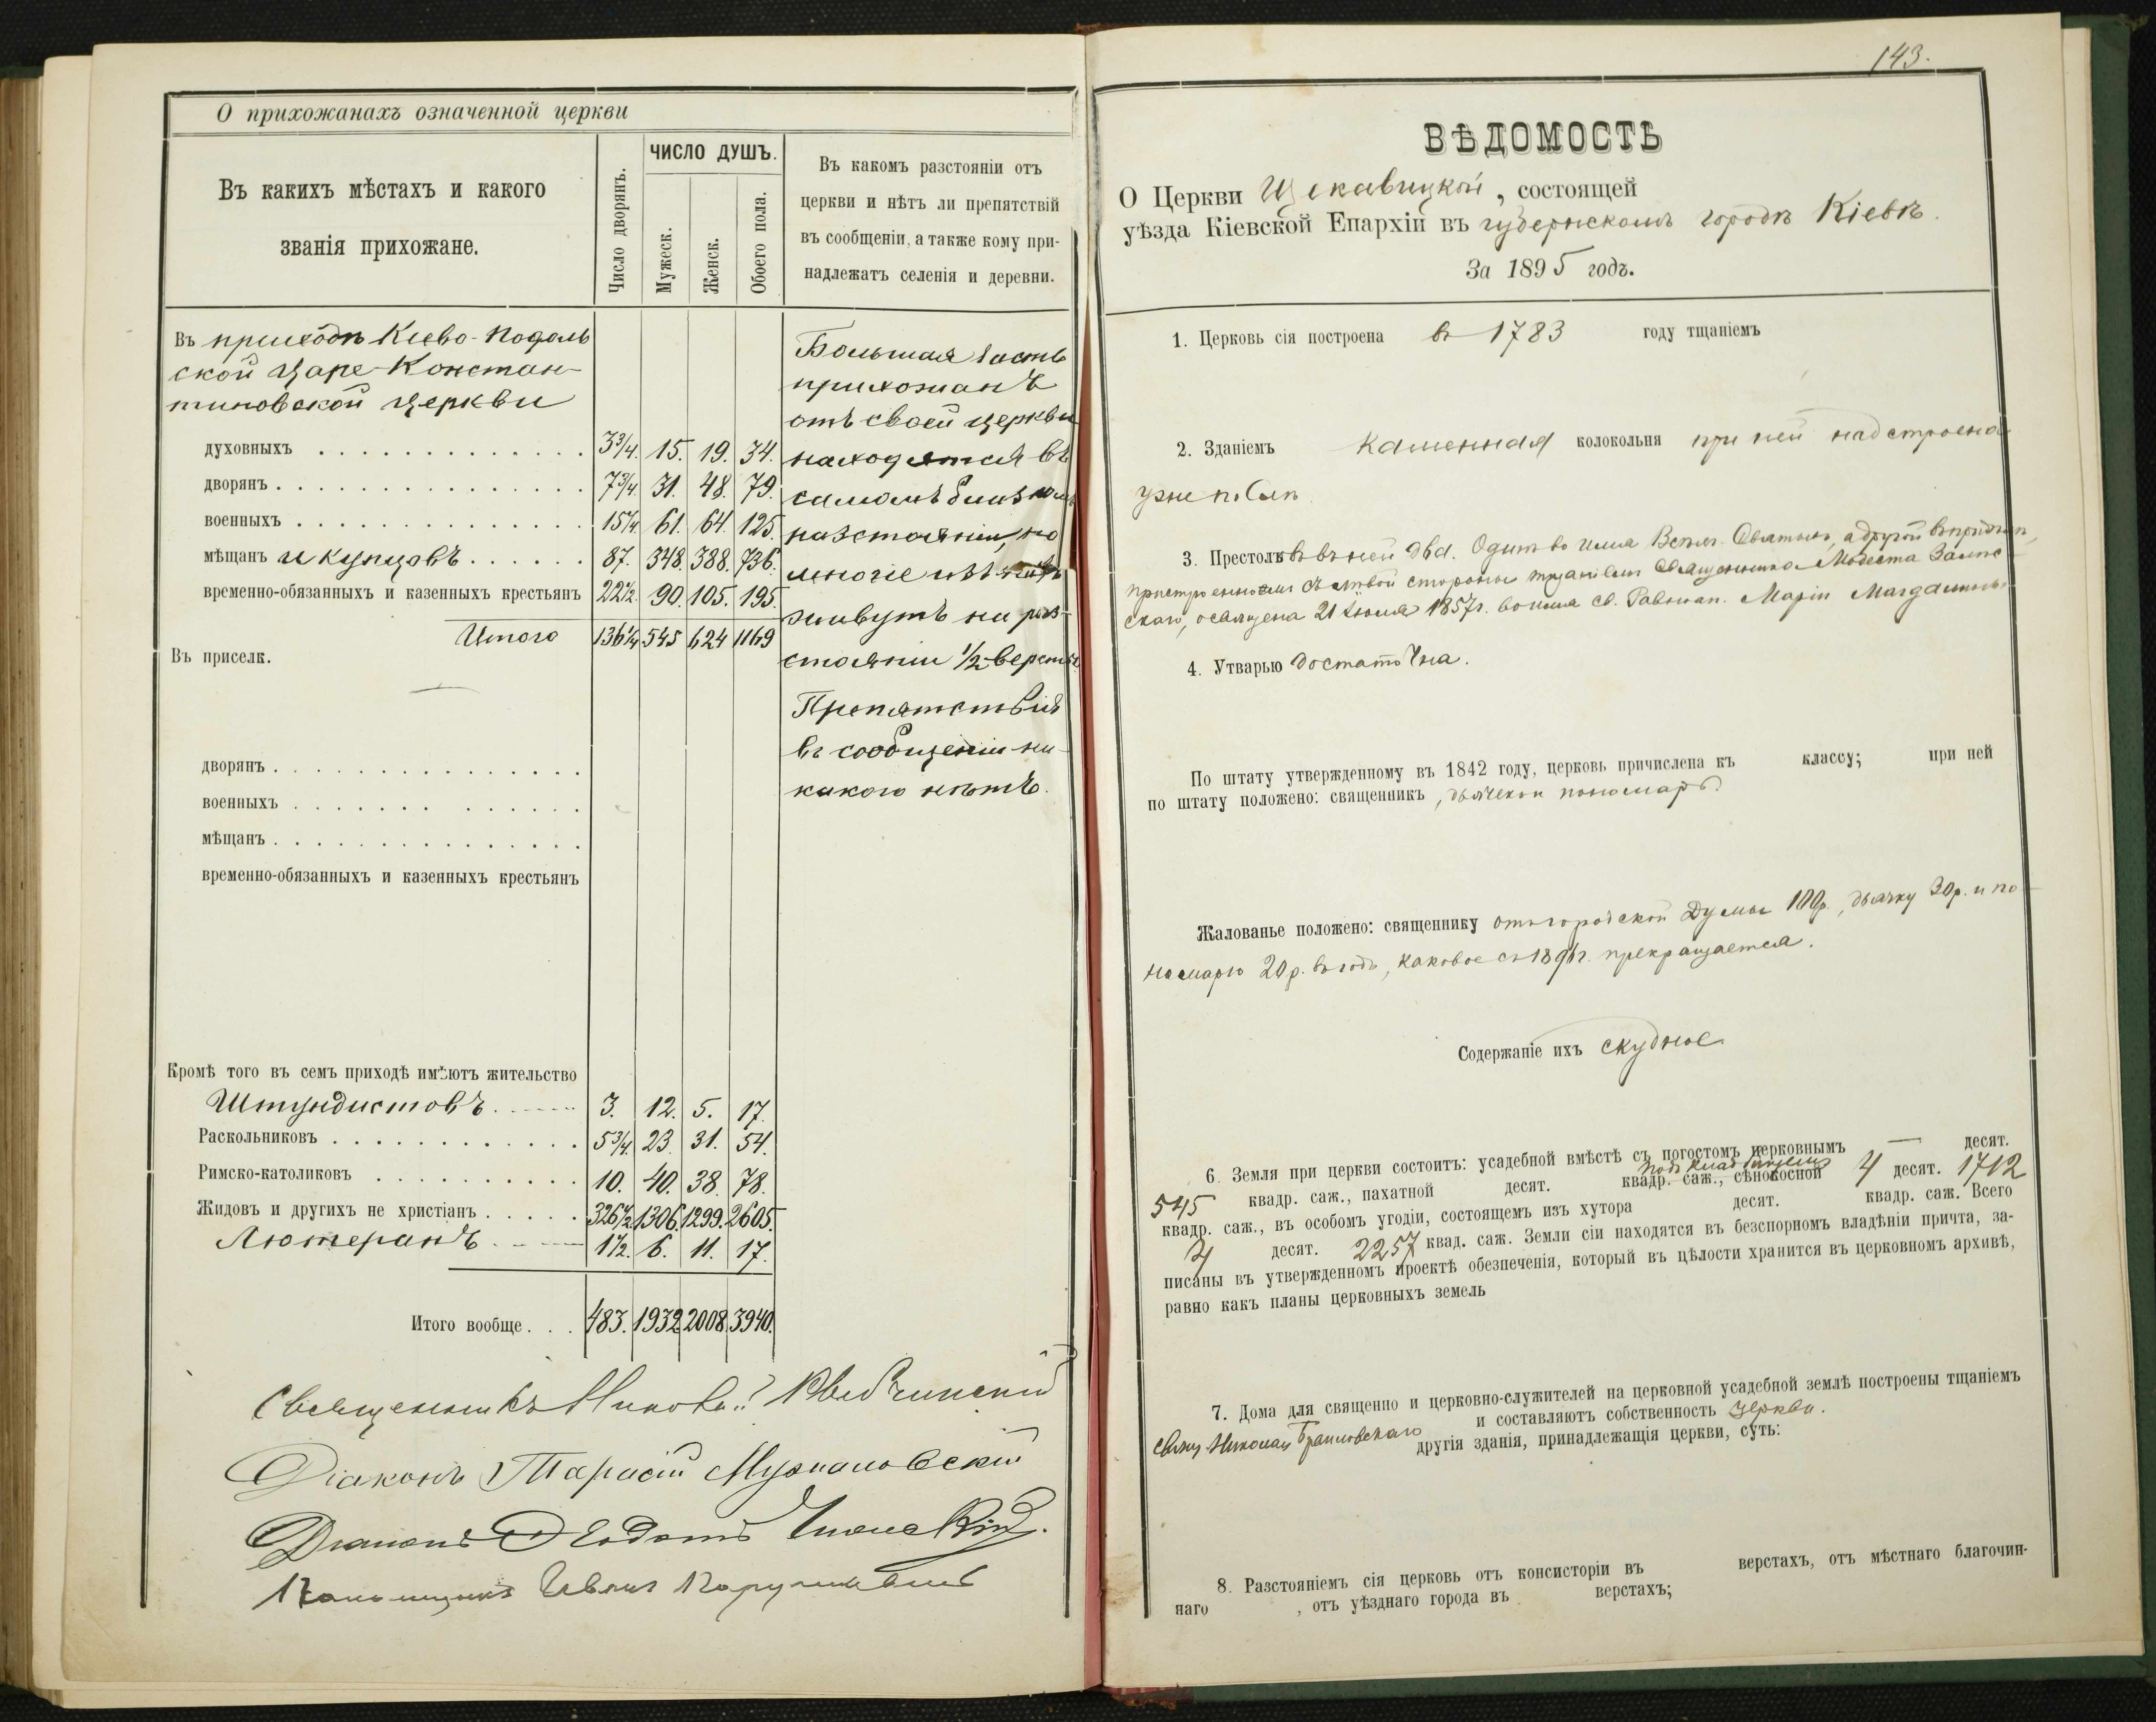 О прихожанахъ означенной церкви
Въ какихъ мѣстахъ и какого
званія прихожане.
Число дворянъ.
ЧИСЛО ДУШЪ.
Мужеск.
Женск.
Обоего пола.
Въ какомъ разстояніи отъ
церкви и нѣтъ ли препятствій
въ сообщеніи, а также кому при-
надлежатъ селенія и деревни.
Въ приходѣ Кіево-Подоль
ской Царе-Констан-
тиновской церкви
духовныхъ 3¾. 15. 19. 34.
дворянъ 7¾. 31. 48. 79.
военныхъ 15¼. 61. 64. 125.
мѣщанъ и купцовъ 87. 348. 388. 736.
временно-обязанныхъ и казенныхъ крестьянъ 22½. 90. 105. 195.
Итого 136¼ 545 624 1169
Въ приселк.
дворянъ
военныхъ
мѣщанъ
временно-обязанныхъ и казенныхъ крестьянъ
Большая часть
прихожанъ
отъ своей церкви
находятся въ
самомъ близкомъ
разстояніи, но
многіе
живутъ на раз-
стояніи ½ версты.
Препятствія
въ сообщеніи ни-
какого нѣтъ.
Кромѣ того въ семъ приходѣ имѣютъ жительство
Штундистовъ 3. 12. 5. 17.
Раскольниковъ 5¾. 23. 31. 54.
Римско-католиковъ 10. 40. 38. 78.
Жидовъ и другихъ не христіанъ 326½. 1306. 1299. 2605.
Лютеранъ 1½. 6. 11. 17.
Итого вообще 483. 1932. 2008. 3940.
Священникъ
Діаконъ Тарасій
Діаконъ
143.
ВѢДОМОСТЬ
О Церкви Щекавицкой, состоящей
уѣзда Кіевской Епархіи въ губернскомъ городѣ Кіевѣ.
За 1895 годъ.
1. Церковь сія построена въ 1783 году тщаніемъ
2. Зданіемъ каменная колокольня при ней надстроена
уже послѣ
3. Престоловъ въ ней два. Одинъ во имя Всѣхъ Святыхъ, а другой въ придѣлѣ,
пристроенномъ съ лѣвой стороны тщаніемъ Священника Модеста
скаго, освящена 21 Іюля 1857г. во имя св. Равноап. Маріи Магдалины.
4. Утварью достаточна.
По штату утвержденному въ 1842 году, церковь причислена къ классу; при ней
по штату положено: священникъ, дьячекъ и пономарь.
Жалованье положено: священнику отъ городской Думы 100р., дьячку 30р. и по-
номарю 20р. въ годъ, каковое съ 1896г. прекращается.
Содержаніе ихъ скудное
6. Земля при церкви состоитъ: усадебной вмѣстѣ съ погостомъ церковнымъ — десят.
545 квадр. саж., пахатной десят. квадр. саж., сѣнокосной подъ кладбищемъ 4 десят. 1712
квадр. саж., въ особомъ угодіи, состоящемъ изъ хутора десят. квадр. саж. Всего
4 десят. 2257 квад. саж. Земли сіи находятся въ безспорномъ владѣніи причта, за-
писаны въ утвержденномъ проектѣ обезпеченія, который въ цѣлости хранится въ церковномъ архивѣ,
равно какъ планы церковныхъ земель
7. Дома для священно и церковно-служителей на церковной усадебной землѣ построены тщаніемъ
свящ. Николая Браиловскаго и составляютъ собственность церкви.
другія зданія, принадлежащія церкви, суть:
8. Разстояніемъ сія церковь отъ консисторіи въ верстахъ, отъ мѣстнаго благочин-
наго , отъ уѣзднаго города въ верстахъ;